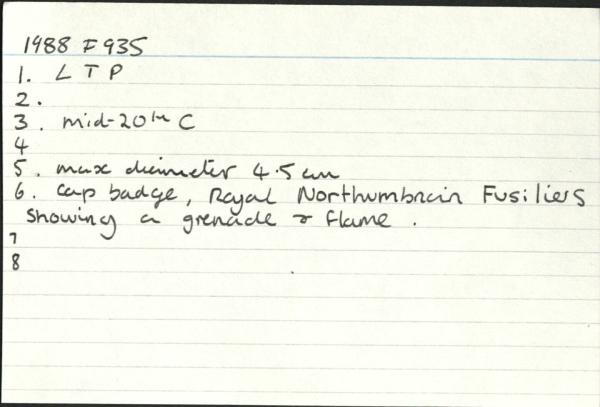 1988 F 935
1. L T P
2.
3. mid-20th C
4
5. max diameter 4.5 cm
6. cap badge, Royal Northumbrain Fusiliers
showing a grenade & flame.
7
8